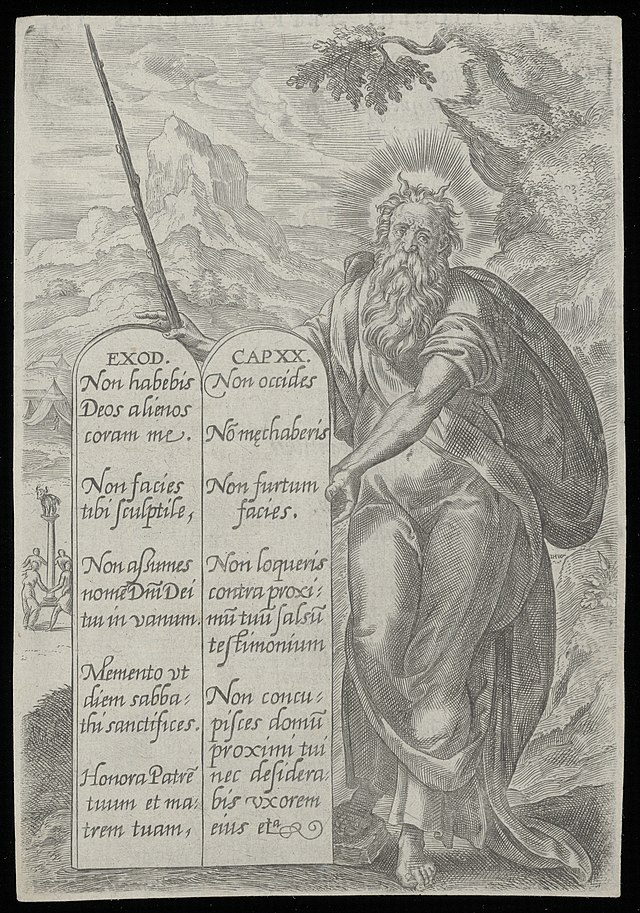 EXOD.
Non habebis
Deos alienos
coram me.
Non facies
tibi ſculptile,
Non aſsumes
nomē Dnī Dei
tui in vanum.
Memento vt
diem sabba-
thi sanctifices.
Honora Patrē
tuum et ma-
trem tuam,
CAP XX.
Non occides
Nō męchaberis
Non furtum
facies.
Non loqueris
contra proxi-
mū tuū falsū
teſtimonium
Non concu-
piſces domū
proximi tui
nec deſidera-
bis vxorem
eius etᵃ